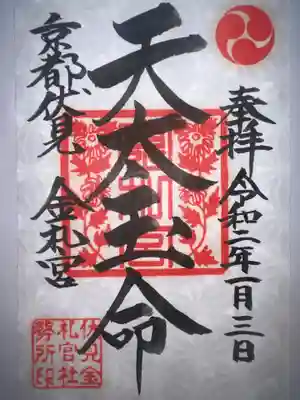 奉拝 令和二年一月三日
天太玉命
京都伏見 金札宮
金札宮
伏見金
札宮社
務所印